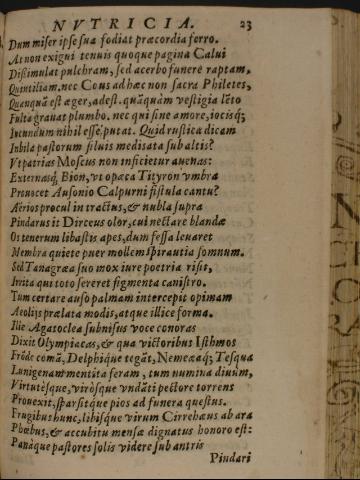 NVTRICIA. 23
Dum miser ipse sua fodiat præcordia ferro.
At non exigui tenuis quoque pagina Calui
Dissimulat pulchram, sed acerbo funere raptam,
Quintiliam. nec Cous ad hæc non sacra Philetes,
Quanquã est æger, adest. quãquàm vestigia lẽto
Fulta grauat plumbo. nec qui sine amore, iocisq́;
Iucundum nihil esse putat. Quid rustica dicam
Iubila pastorum siluis meditata sub altis?
Vt patrias Moscus non inficietur auenas:
Externasq́; Bion, vt opaca Tityron vmbra
Prouocet Ausonio Calpurni fistula cantu?
Aërios procul in tractus, & nubila supra
Pindarus it Dirceus olor, cui nectare blandæ
Os tenerum libastis apes, dum fessa leuaret
Membra quiete puer mollem spirantia somnum.
Sed Tanagræa suo mox iure poetria risit,
Irrita qui toto sereret figmenta canistro.
Tum certare auso palmam intercepit opimam
Aeolijs prælata modis, atque illice forma.
Ille Agatoclea subnisus voce conoras
Dixit Olympiacas, & qua victoribus Isthmos
Frõde comã, Delphíque tegãt, Nemeæaq́; Tesqua
Lunigenam mentita feram, tum numina diuûm,
Virtutésque, virósque vndãti pectore torrens
Prouexit, sparsitque pios ad funera questus.
Frugibus hunc, libisque virum Cirrehæus ab ara
Phœbus, & accubitu mensæ dignatus honoro est:
Panàque pastores solis videre sub antris
Pindari